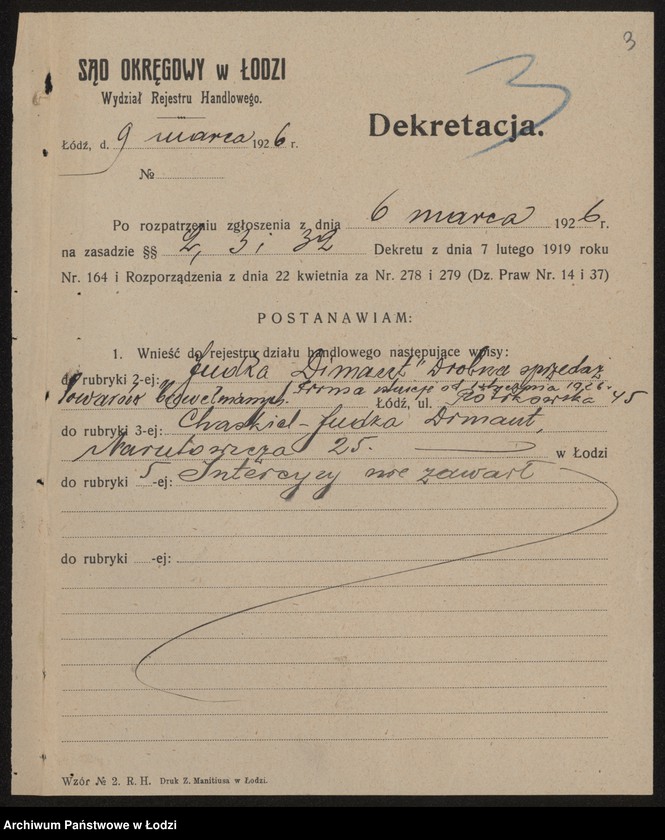 3
SĄD OKRĘGOWY w ŁODZI
Wydział Rejestru Handlowego.
3
Dekretacja.
Łódź, d. 9 marca 1926 r.
№
Po rozpatrzeniu zgłoszenia z dnia 6 marca 1926 r.
na zasadzie §§ 2, 3 i 32 Dekretu z dnia 7 lutego 1919 roku
Nr. 164 i Rozporządzenia z dnia 22 kwietnia za Nr. 278 i 279 (Dz. Praw Nr. 14 i 37)
POSTANAWIAM:
1. Wnieść do rejestru działu handlowego następujące wpisy:
do rubryki 2-ej: "Judka Dimant" Drobna sprzedaż
towarów bawełnianych. Firma istnieje od 1 stycznia 1926 r.
Łódź, ul. Piotrkowska 45
do rubryki 3-ej: Chaskiel-Judka Dimant,
Narutowicza 25. w Łodzi
do rubryki 5-ej: Intercyzy nie zawarł
do rubryki -ej:
Wzór № 2. R. H. Druk Z. Manitiusa w Łodzi.
Archiwum Państwowe w Łodzi